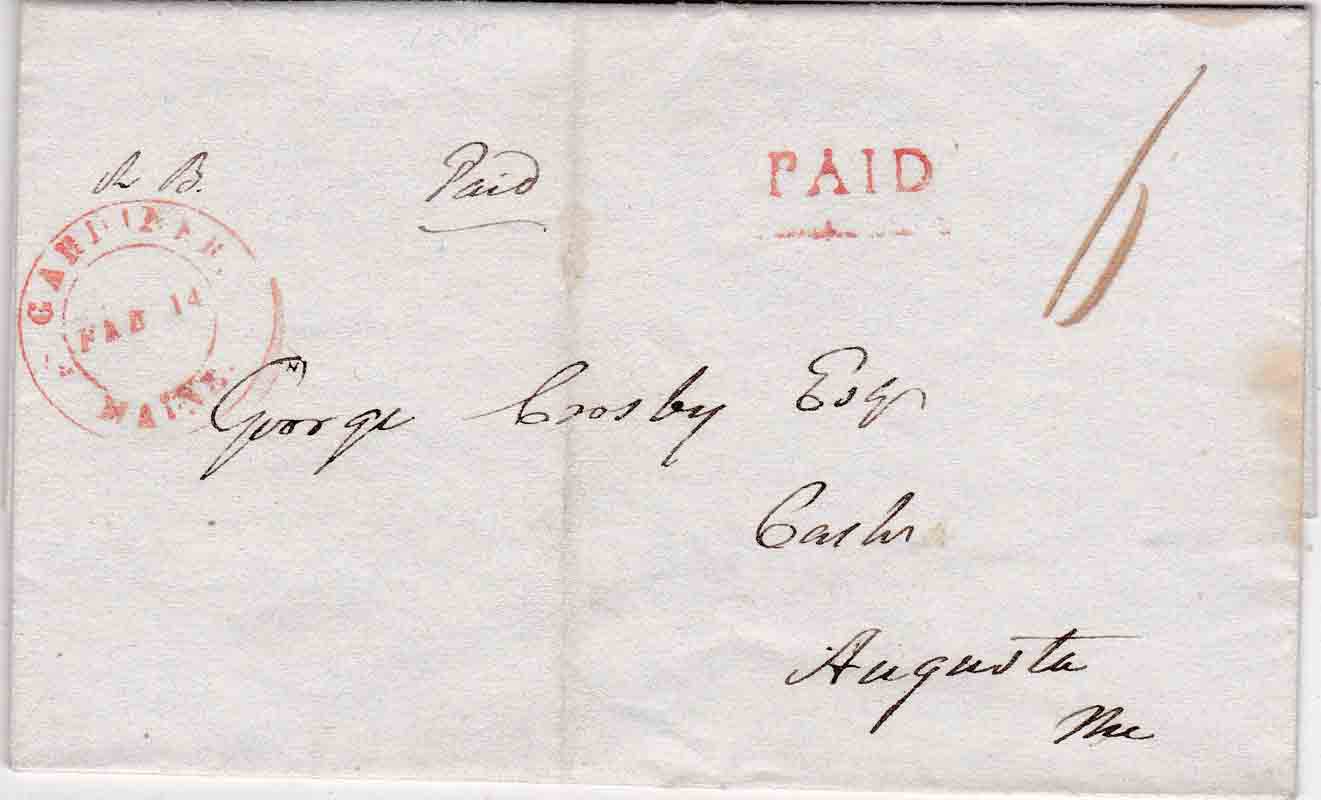 R B. Paid PAID 6
GARDINER.
FEB 14
MAINE.
George Crosby Esqr
Cashr
Augusta
Me